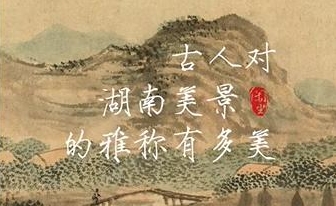 古人对
湖南美景
的雅称有多美